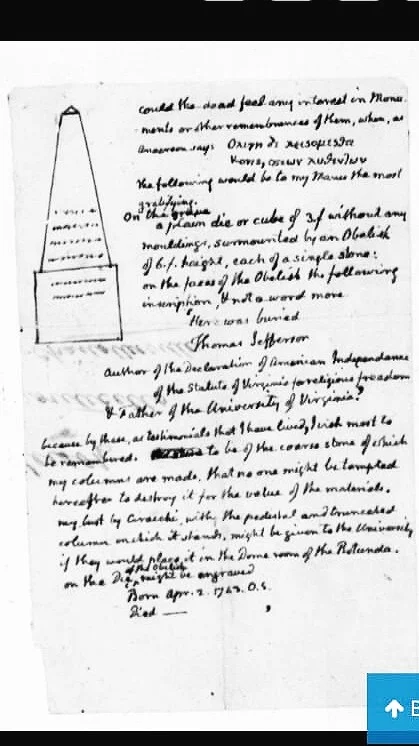 could the dead feel any interest in Monu-
ments or other remembrances of them, when, as
Anacreon says: Ολιγη δε κεισομεσθα
Κονις, οστεων λυθεντων
the following would be to my Manes the most
gratifying.
On the grave
a plain die or cube of 3.f without any
mouldings, surmounted by an Obelisk
of 6.f. height, each of a single stone:
on the faces of the Obelisk the following
inscription, & not a word more
"Here was buried
Thomas Jefferson
Author of the Declaration of American Independance
of the Statute of Virginia for religious freedom
& Father of the University of Virginia."
because by these, as testimonials that I have lived, I wish most to
be remembered. to be of the coarse stone of which
my columns are made, that no one might be tempted
hereafter to destroy it for the value of the materials.
my bust by Ciracchi, with the pedestal and truncated
column on which it stands, might be given to the University
if they would place it in the Dome room of the Rotunda.
on the Die of the Obelisk might be engraved
Born Apr. 2. 1743. O.S.
Died ——